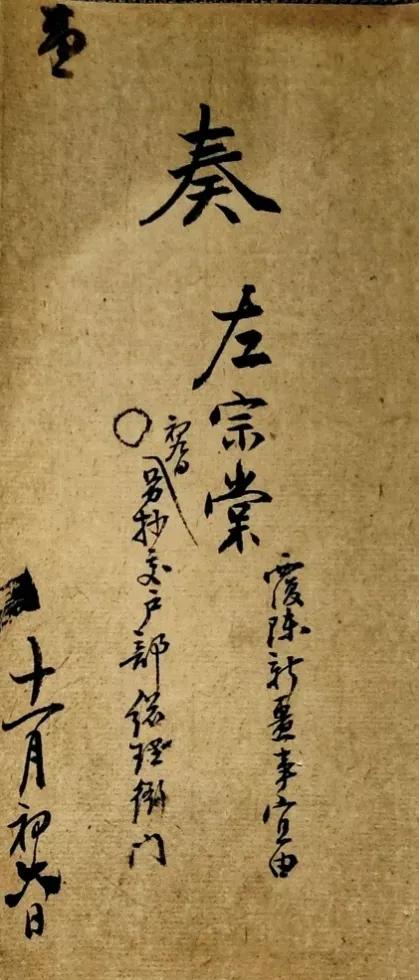 奏
左宗棠
覆陳新疆事宜由
初九日
另抄交户部總理衙门
十一月初六日